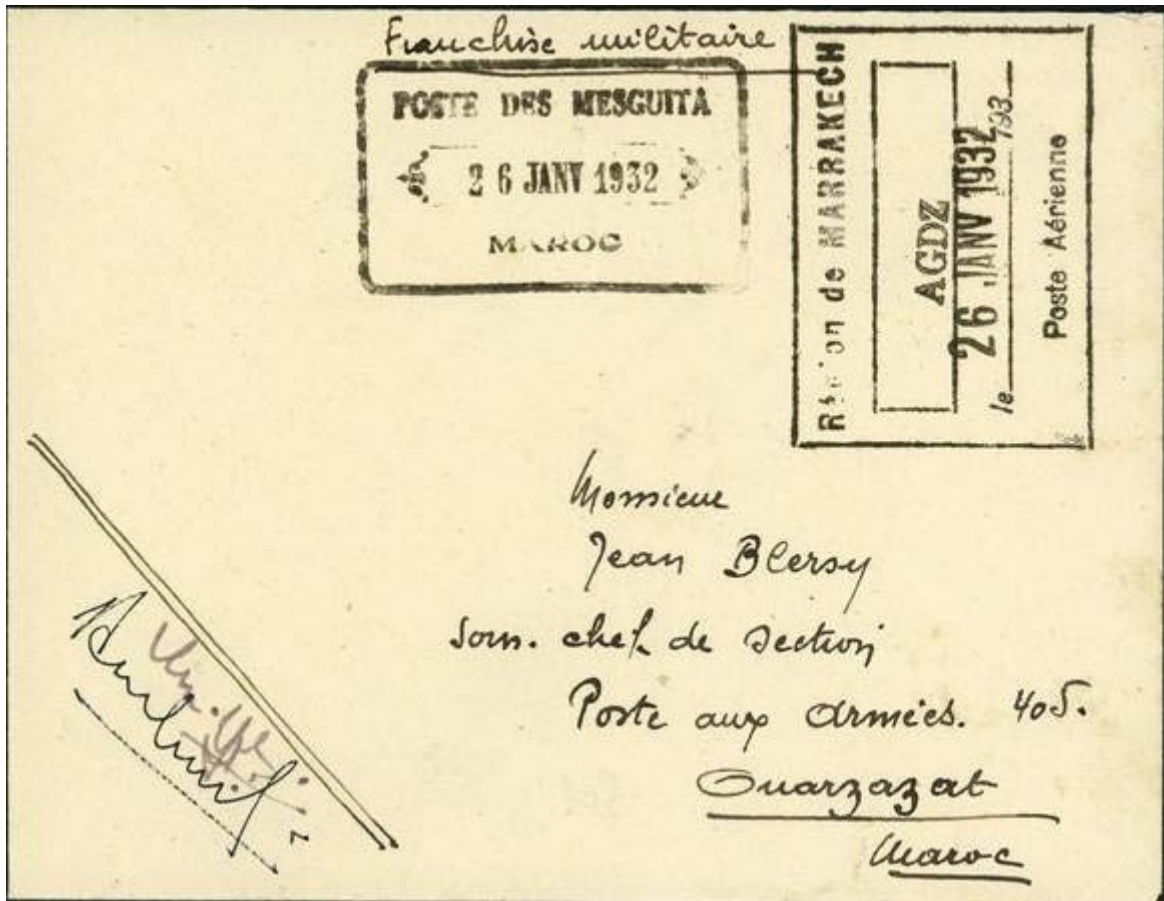 Franchise militaire
POSTE DES MESGUITA
26 JANV 1932
MAROC
Région de MARRAKECH
AGDZ
26 JANV 1932
le 193
Poste Aérienne
Monsieur
Jean Blersy
sous. chef de section
Poste aux Armées. 405.
Ouarzazat
Maroc